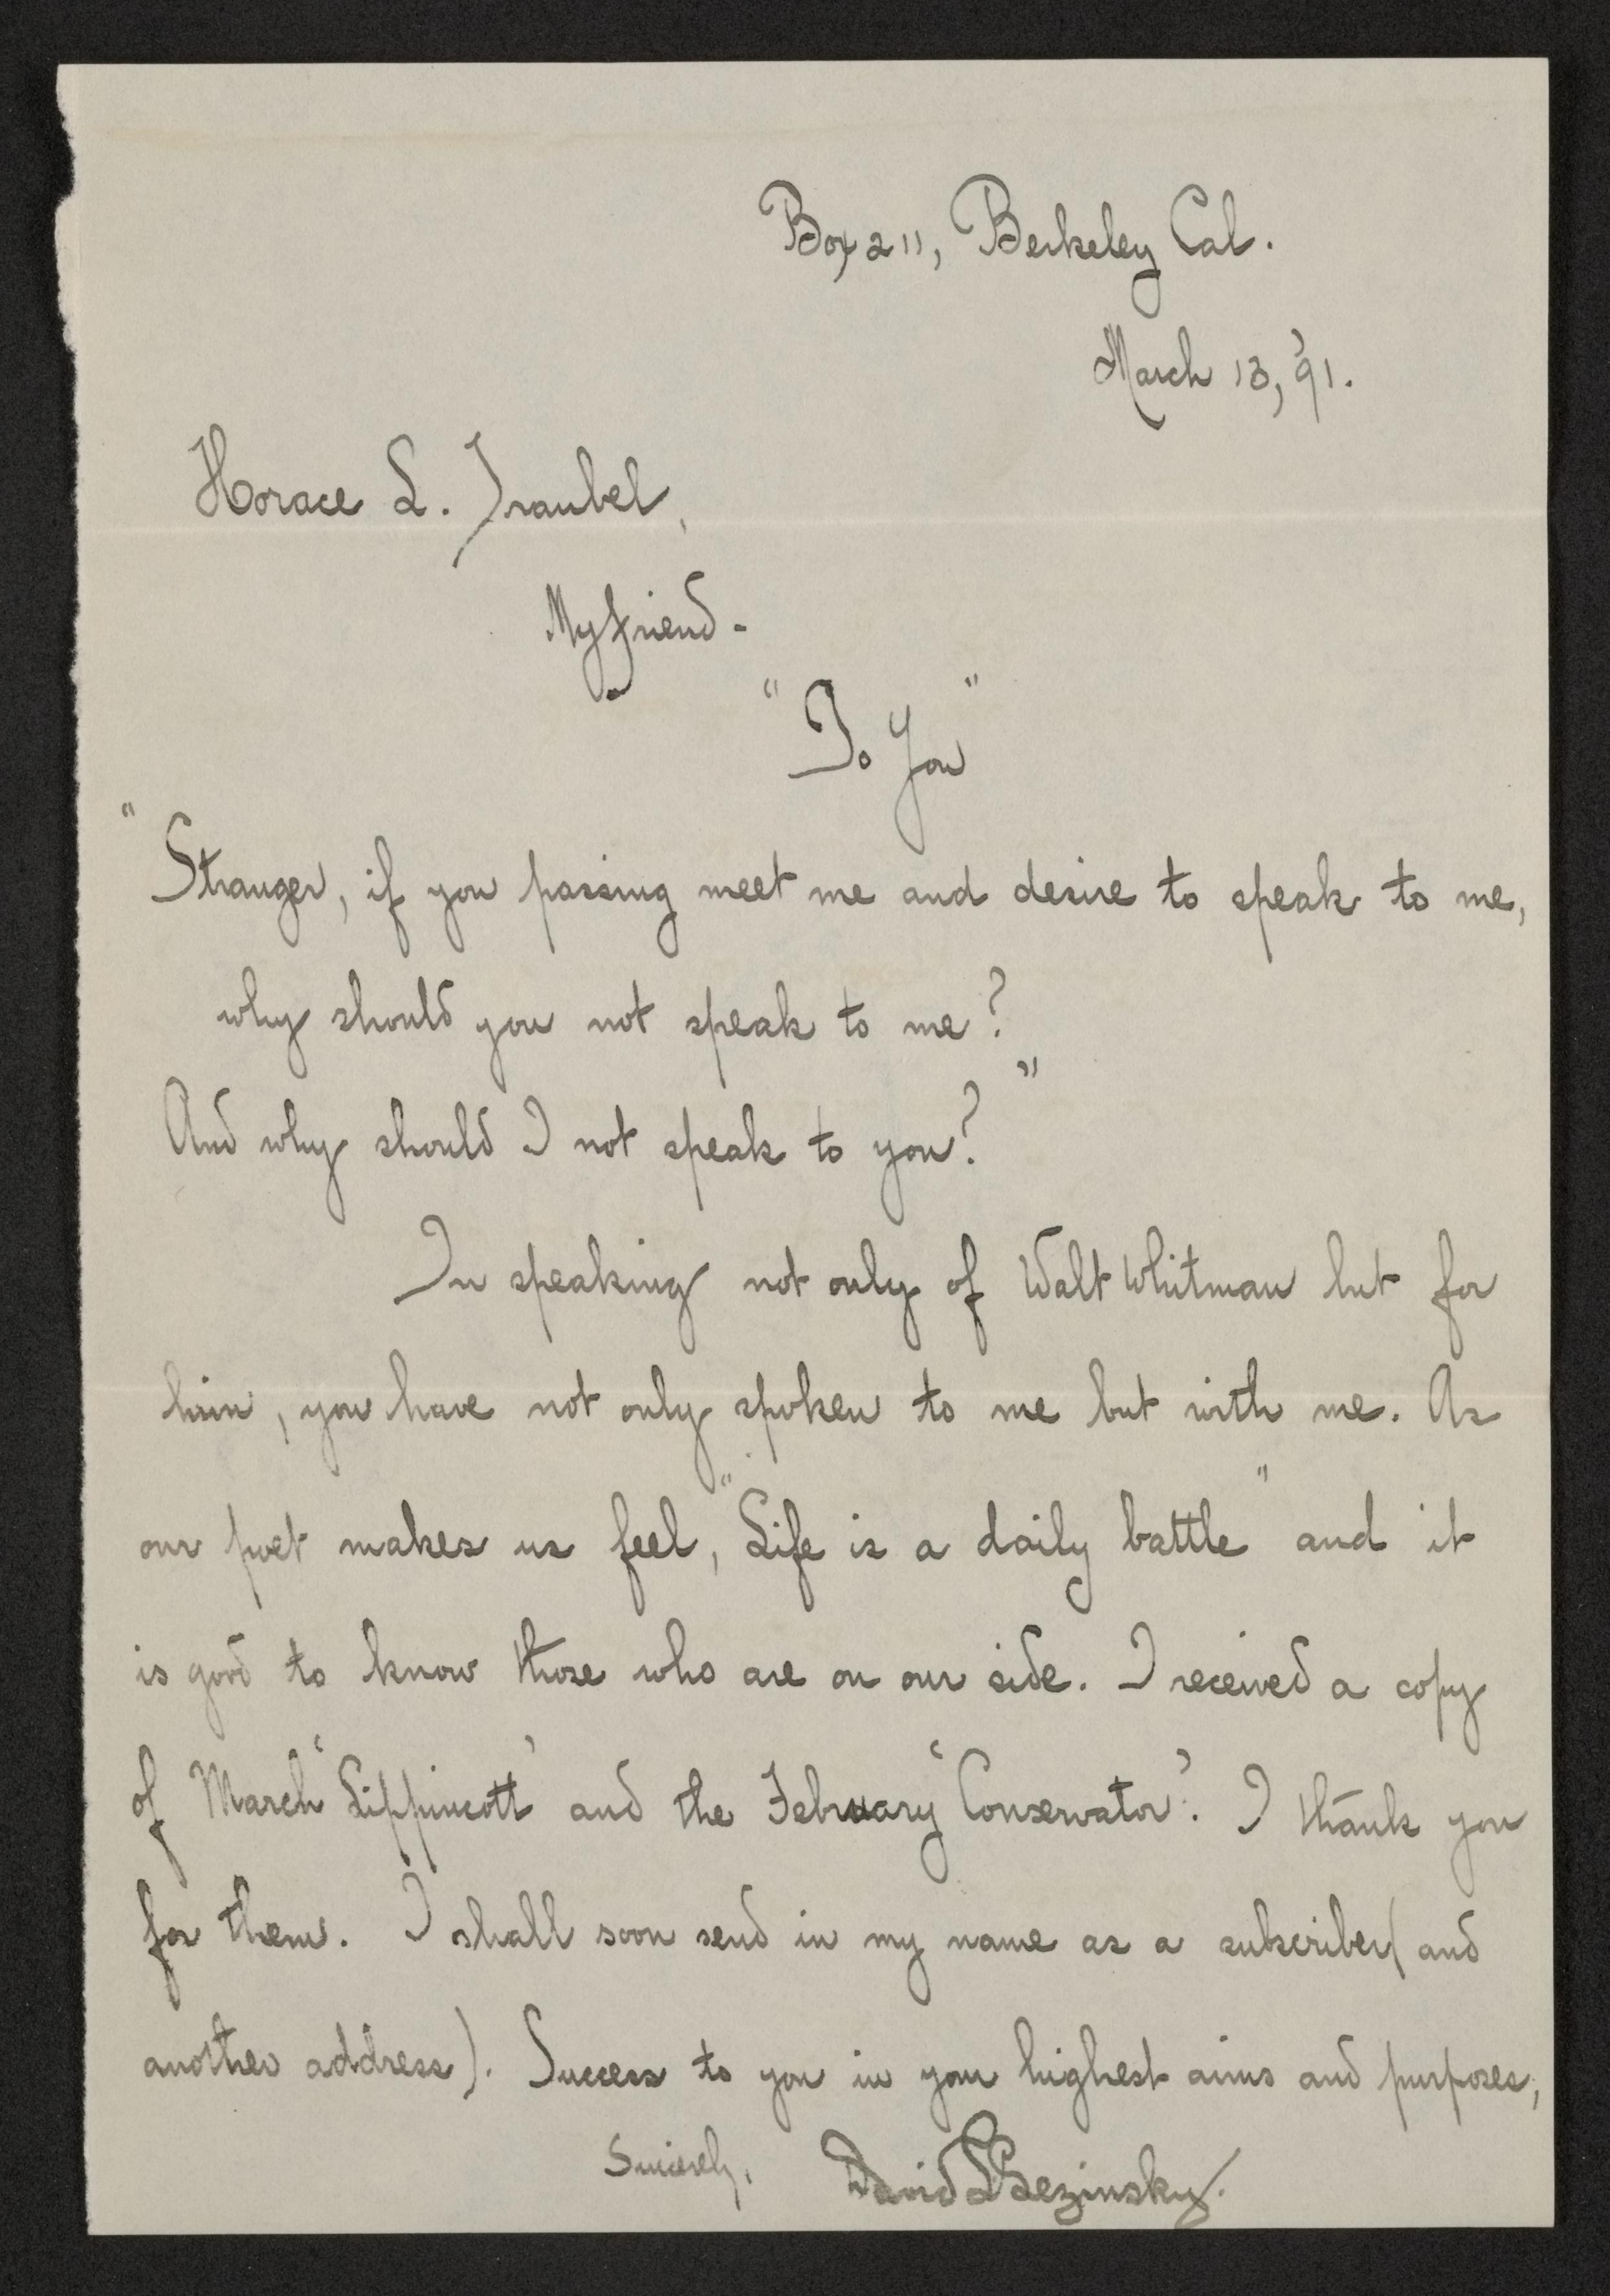 Box 211, Berkeley Cal.
March 13, '91.
Horace L. Traubel,
My friend -
"To You"
"Stranger, if you passing meet me and desire to speak to me,
why should you not speak to me?
And why should I not speak to you?"
In speaking not only of Walt Whitman but for
him, you have not only spoken to me but with me. As
our poet makes us feel, "Life is a daily battle" and it
is good to know those who are on our side. I received a copy
of March 'Lippincott' and the February 'Conservator'. I thank you
for them. I shall soon send in my name as a subscriber (and
another address). Success to you in your highest aims and purposes,
Sincerely, David L Lezinsky.